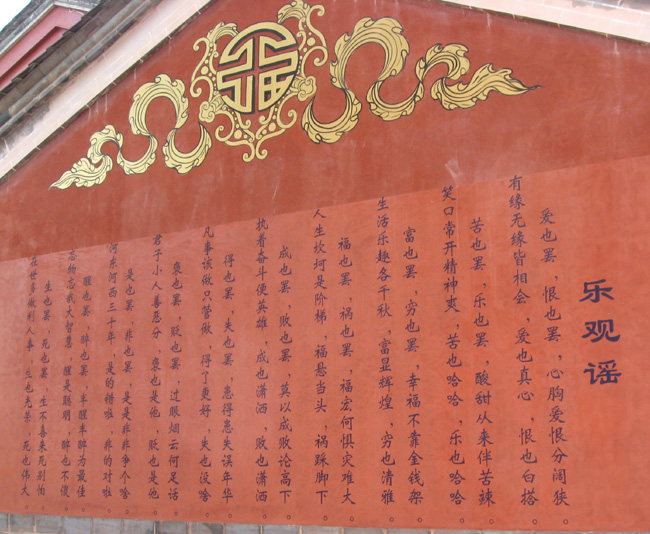 乐观谣
爱也罢，恨也罢，心胸爱恨分阔狭。
有缘无缘皆相会，爱也真心，恨也白搭。
苦也罢，乐也罢，酸甜从来伴苦辣。
笑口常开精神爽，苦也哈哈，乐也哈哈。
富也罢，穷也罢，幸福不靠金钱架。
生活乐趣各千秋，富显辉煌，穷也清雅。
福也罢，祸也罢，福宏何惧灾难大。
人生坎坷是阶梯，福悬当头，祸踩脚下。
成也罢，败也罢，莫以成败论高下。
执着奋斗便英雄，成也潇洒，败也潇洒。
得也罢，失也罢，患得患失误年华。
凡事该做只管做，得了更好，失也没啥。
褒也罢，贬也罢，过眼烟云何足话。
君子小人善恶分，褒也是他，贬也是他。
是也罢，非也罢，是是非非争个啥。
河东河西三十年，是的错啦，非的对啦。
醒也罢，醉也罢，半醒半醉为最佳。
忘物忘我大智慧，醒是聪明，醉也不傻。
生也罢，死也罢，生不喜来死别怕。
在世多做利人事，生也光荣，死也伟大。